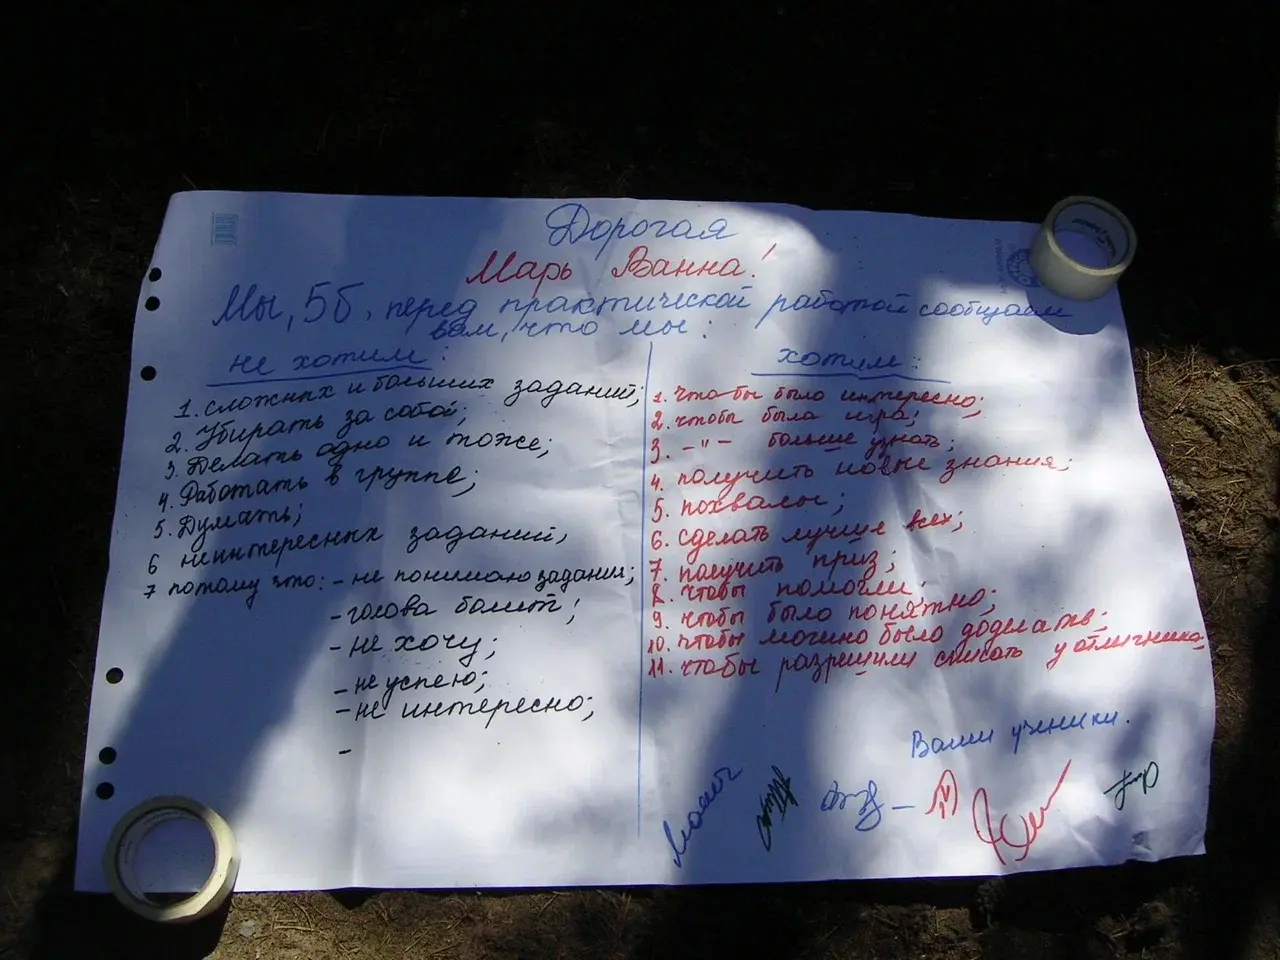 Дорогая
Марь Ванна!
Мы, 5б, перед практической работой сообщаем
вам, что мы:
не хотим:
1. сложных и больших заданий;
2. Убирать за собой;
3. Делать одно и тоже;
4. Работать в группе;
5. Думать;
6 неинтересных заданий;
7 потому что: - не понимаю задания;
- голова болит;
- не хочу;
- не успею;
- не интересно;
-
хотим:
1. что бы было интересно;
2. чтобы была игра;
3. -"- больше узнать;
4. получить новые знания;
5. похвалы;
6. сделать лучше всех;
7. получить приз;
8. чтобы помогли;
9. чтобы было понятно;
10. чтобы можно было доделать;
11. чтобы разрешили списать у отличника;
Ваши ученики.